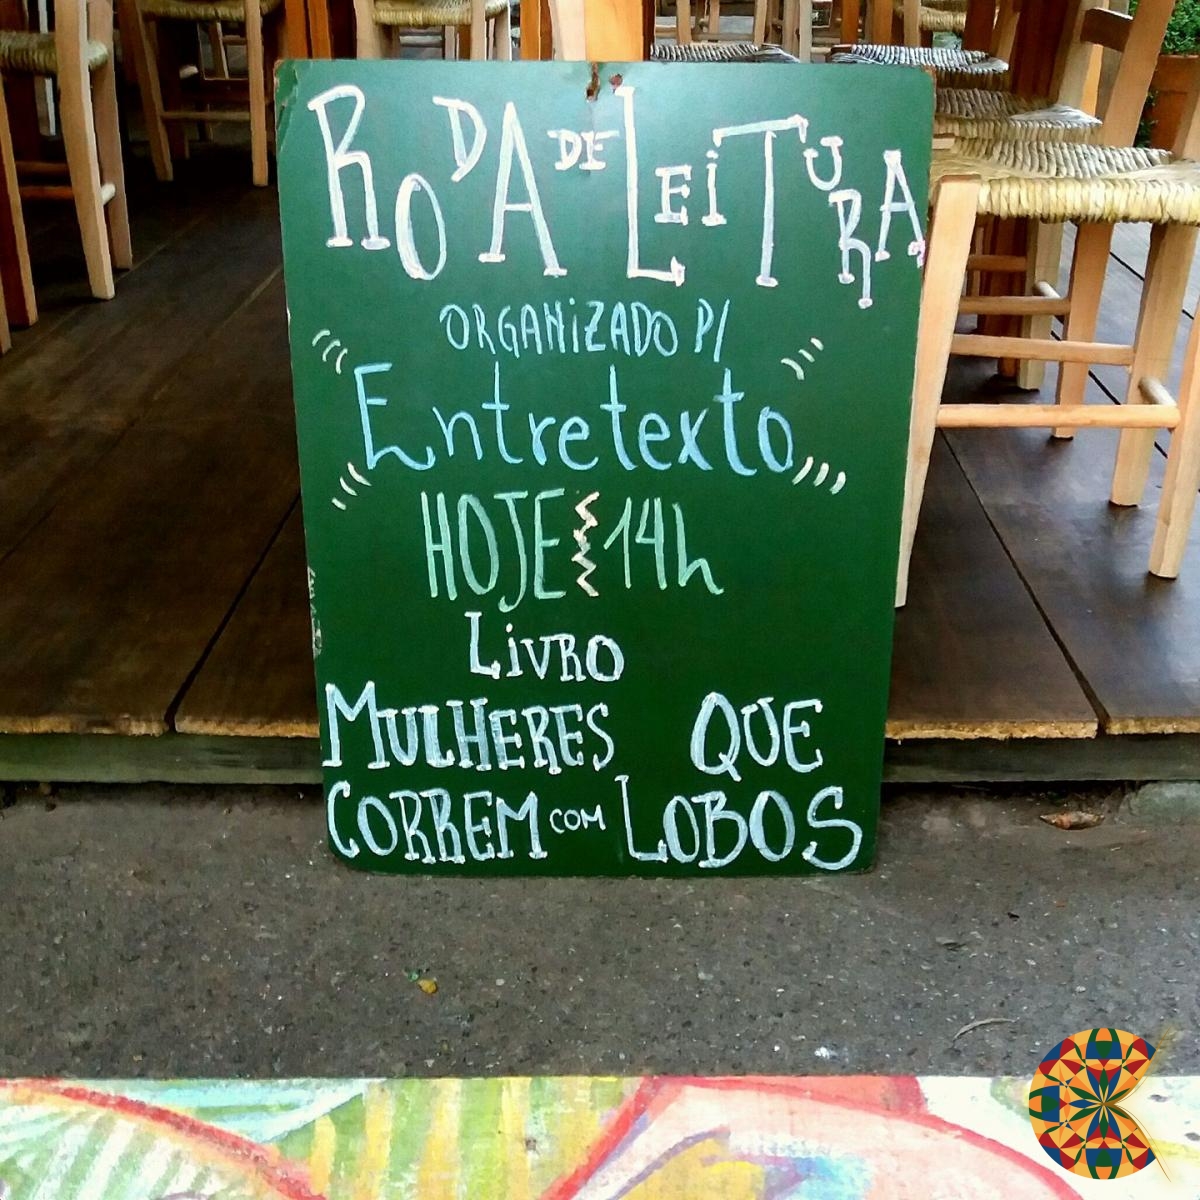 RODA DE LEITURA
ORGANIZADO P/
Entretexto
HOJE 14h
LIVRO
MULHERES QUE
CORREM COM LOBOS